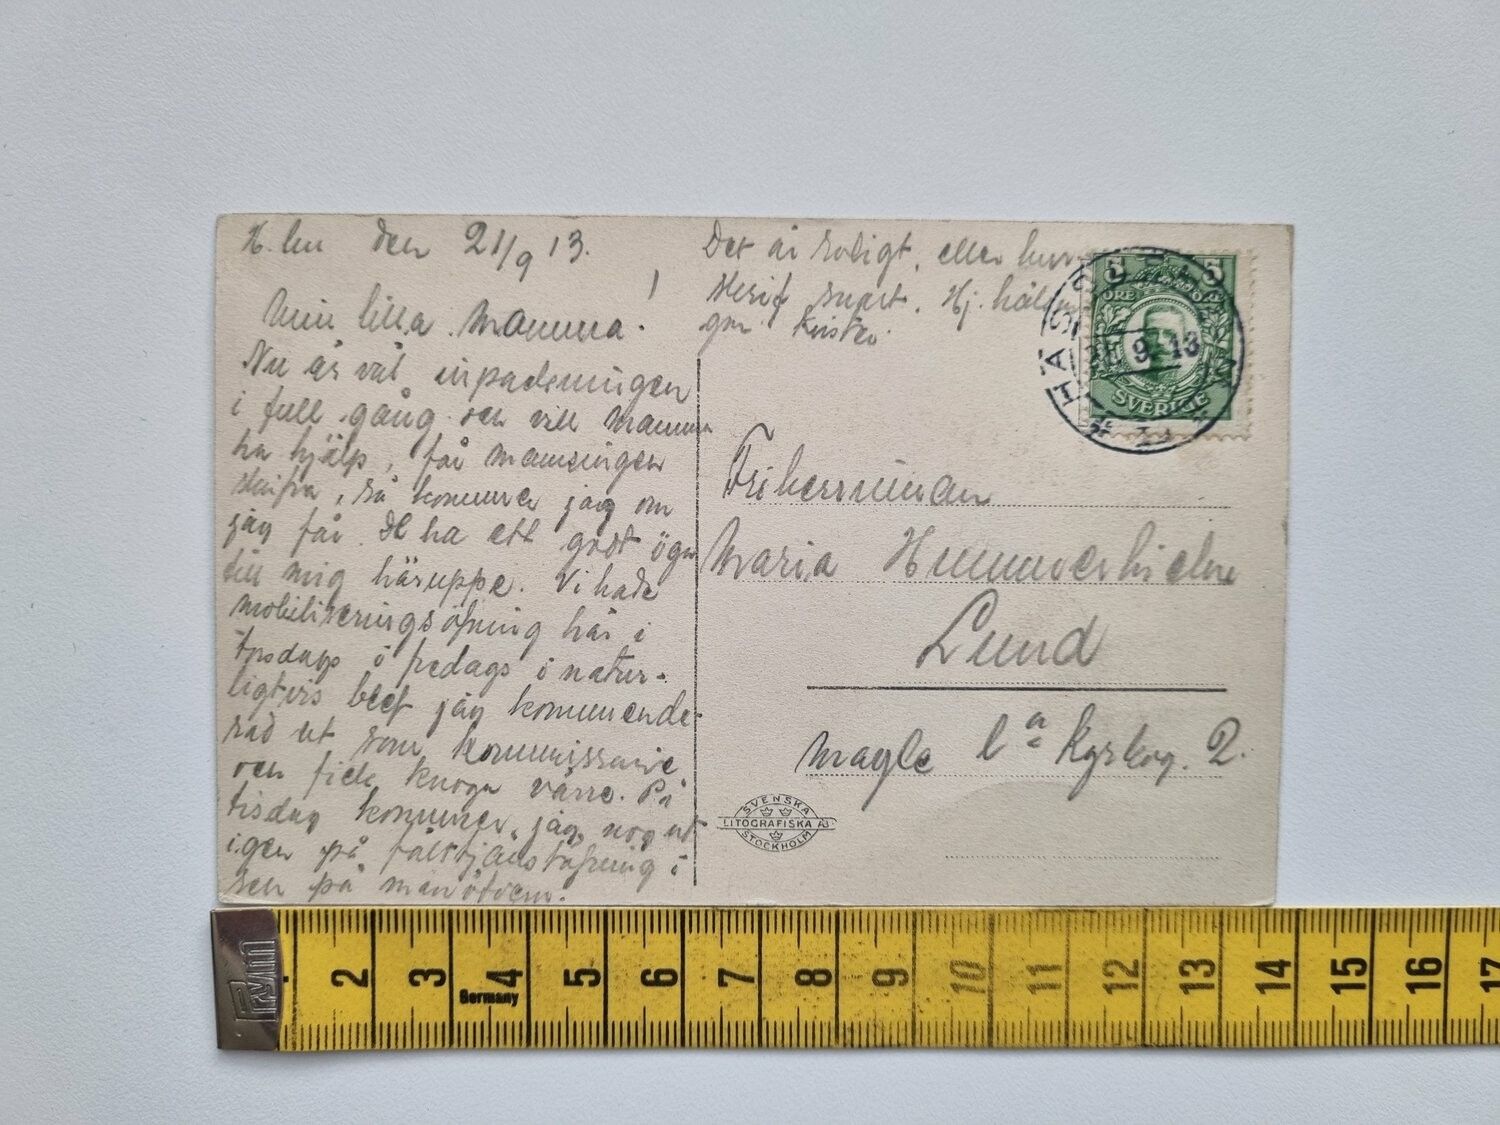 H.lm den 21/9 13.
Min lilla Mamma!
Nu är väl inpackningen
i full gång och vill Mamma
ha hjälp, får mamsingen
skrifva, så kommer jag om
jag får. H ha ett godt öga
till mig häruppe. Vi hade
mobiliseringsöfning här i
torsdags o fredags o natur-
ligtvis blef jag kommende-
rad ut som kommissarie
och fick knoga värre. På
tisdag kommer jag nog ut
igen på fälttjänstöfning o
sen på manövern.
Det är roligt, eller hur
skrif snart. Hj. häls
gar Krister.
HÄSSLEHOLM
21 9 13
5 5
ÖRE
SVERIGE
Friherrinnan
Maria Hummerhielm
Lund
Magle l:a Kyrkog. 2.
SVENSKA
LITOGRAFISKA AB
STOCKHOLM
Prym
2 3 4 5 6 7 8 9 10 11 12 13 14 15 16 17
Germany